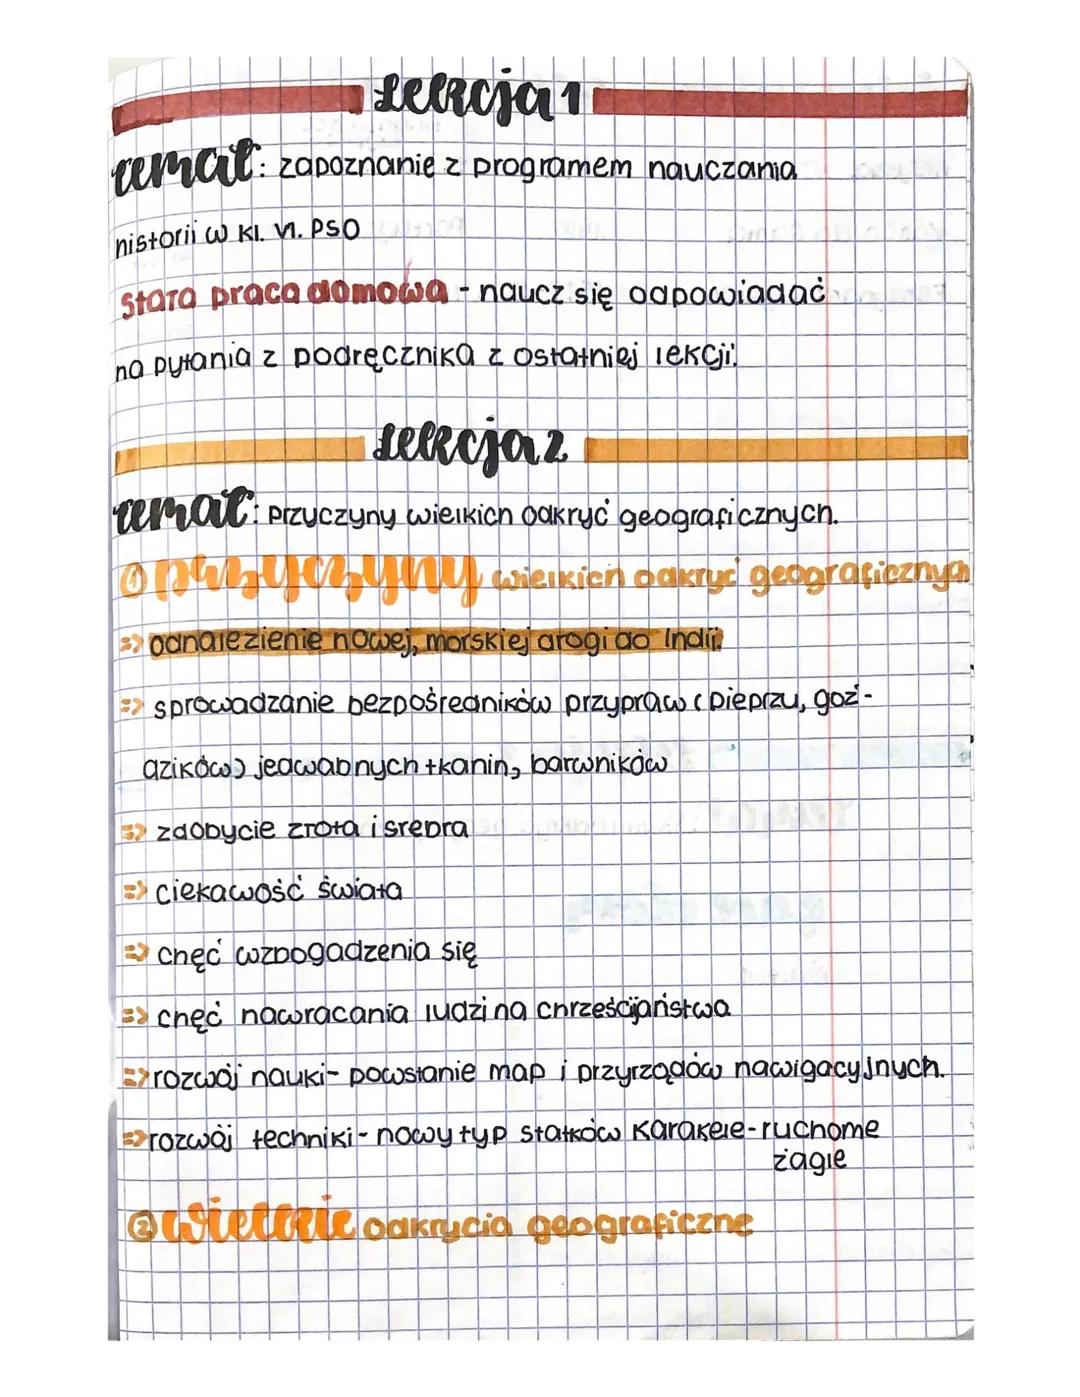 Lekcja 1
temat: zapoznanie z programem nauczania
historii w kl. VI. PSO
stała praca domowa - naucz się odpowiadać
na pytania z podręcznika z ostatniej lekcji!
Lekcja 2
temat: przyczyny wielkich odkryć geograficznych.
① przyczyny wielkich odkryć geograficznych
=> odnalezienie nowej, morskiej drogi do Indii.
=> sprowadzanie bezpośredników przypraw (pieprzu, goź-
dzików) jedwabnych tkanin, barwników
=> zdobycie złota i srebra
=> ciekawość świata
=> chęć wzbogadzenia się
=> chęć nawracania ludzi na chrześcijaństwa
=> rozwój nauki - powstanie map i przyrządów nawigacyjnych.
=> rozwój techniki - nowy typ statków karakele - ruchome
żagle
② wielkie odkrycia geograficzne